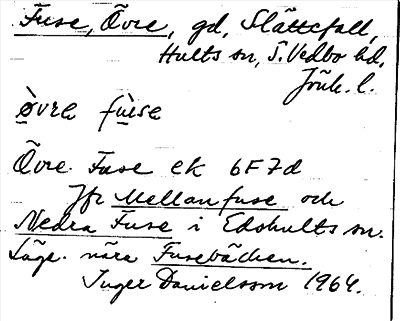 Fuse, Övre, gd, Slättefall,
Hults sn, S. Vedbo hd,
Jönk. l.
òvre fùse
Övre Fuse ek 6F7d
Jfr Mellanfuse och
Nedra Fuse i Edshults sn.
Läge: nära Fusebäcken.
Inger Danielsson 1964.